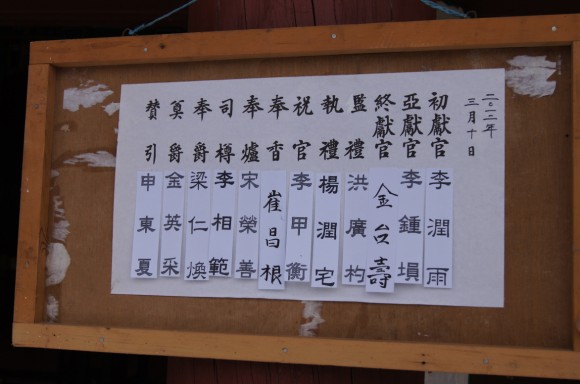 二〇一二年
三月十日
初獻官 李潤雨
亞獻官 李鍾塤
終獻官 金台壽
監禮 洪廣杓
執禮 楊潤宅
祝官 李甲衡
奉香 崔昌根
奉爐 宋榮善
司樽 李相範
奉爵 梁仁煥
奠爵 金英采
贊引 申東夏